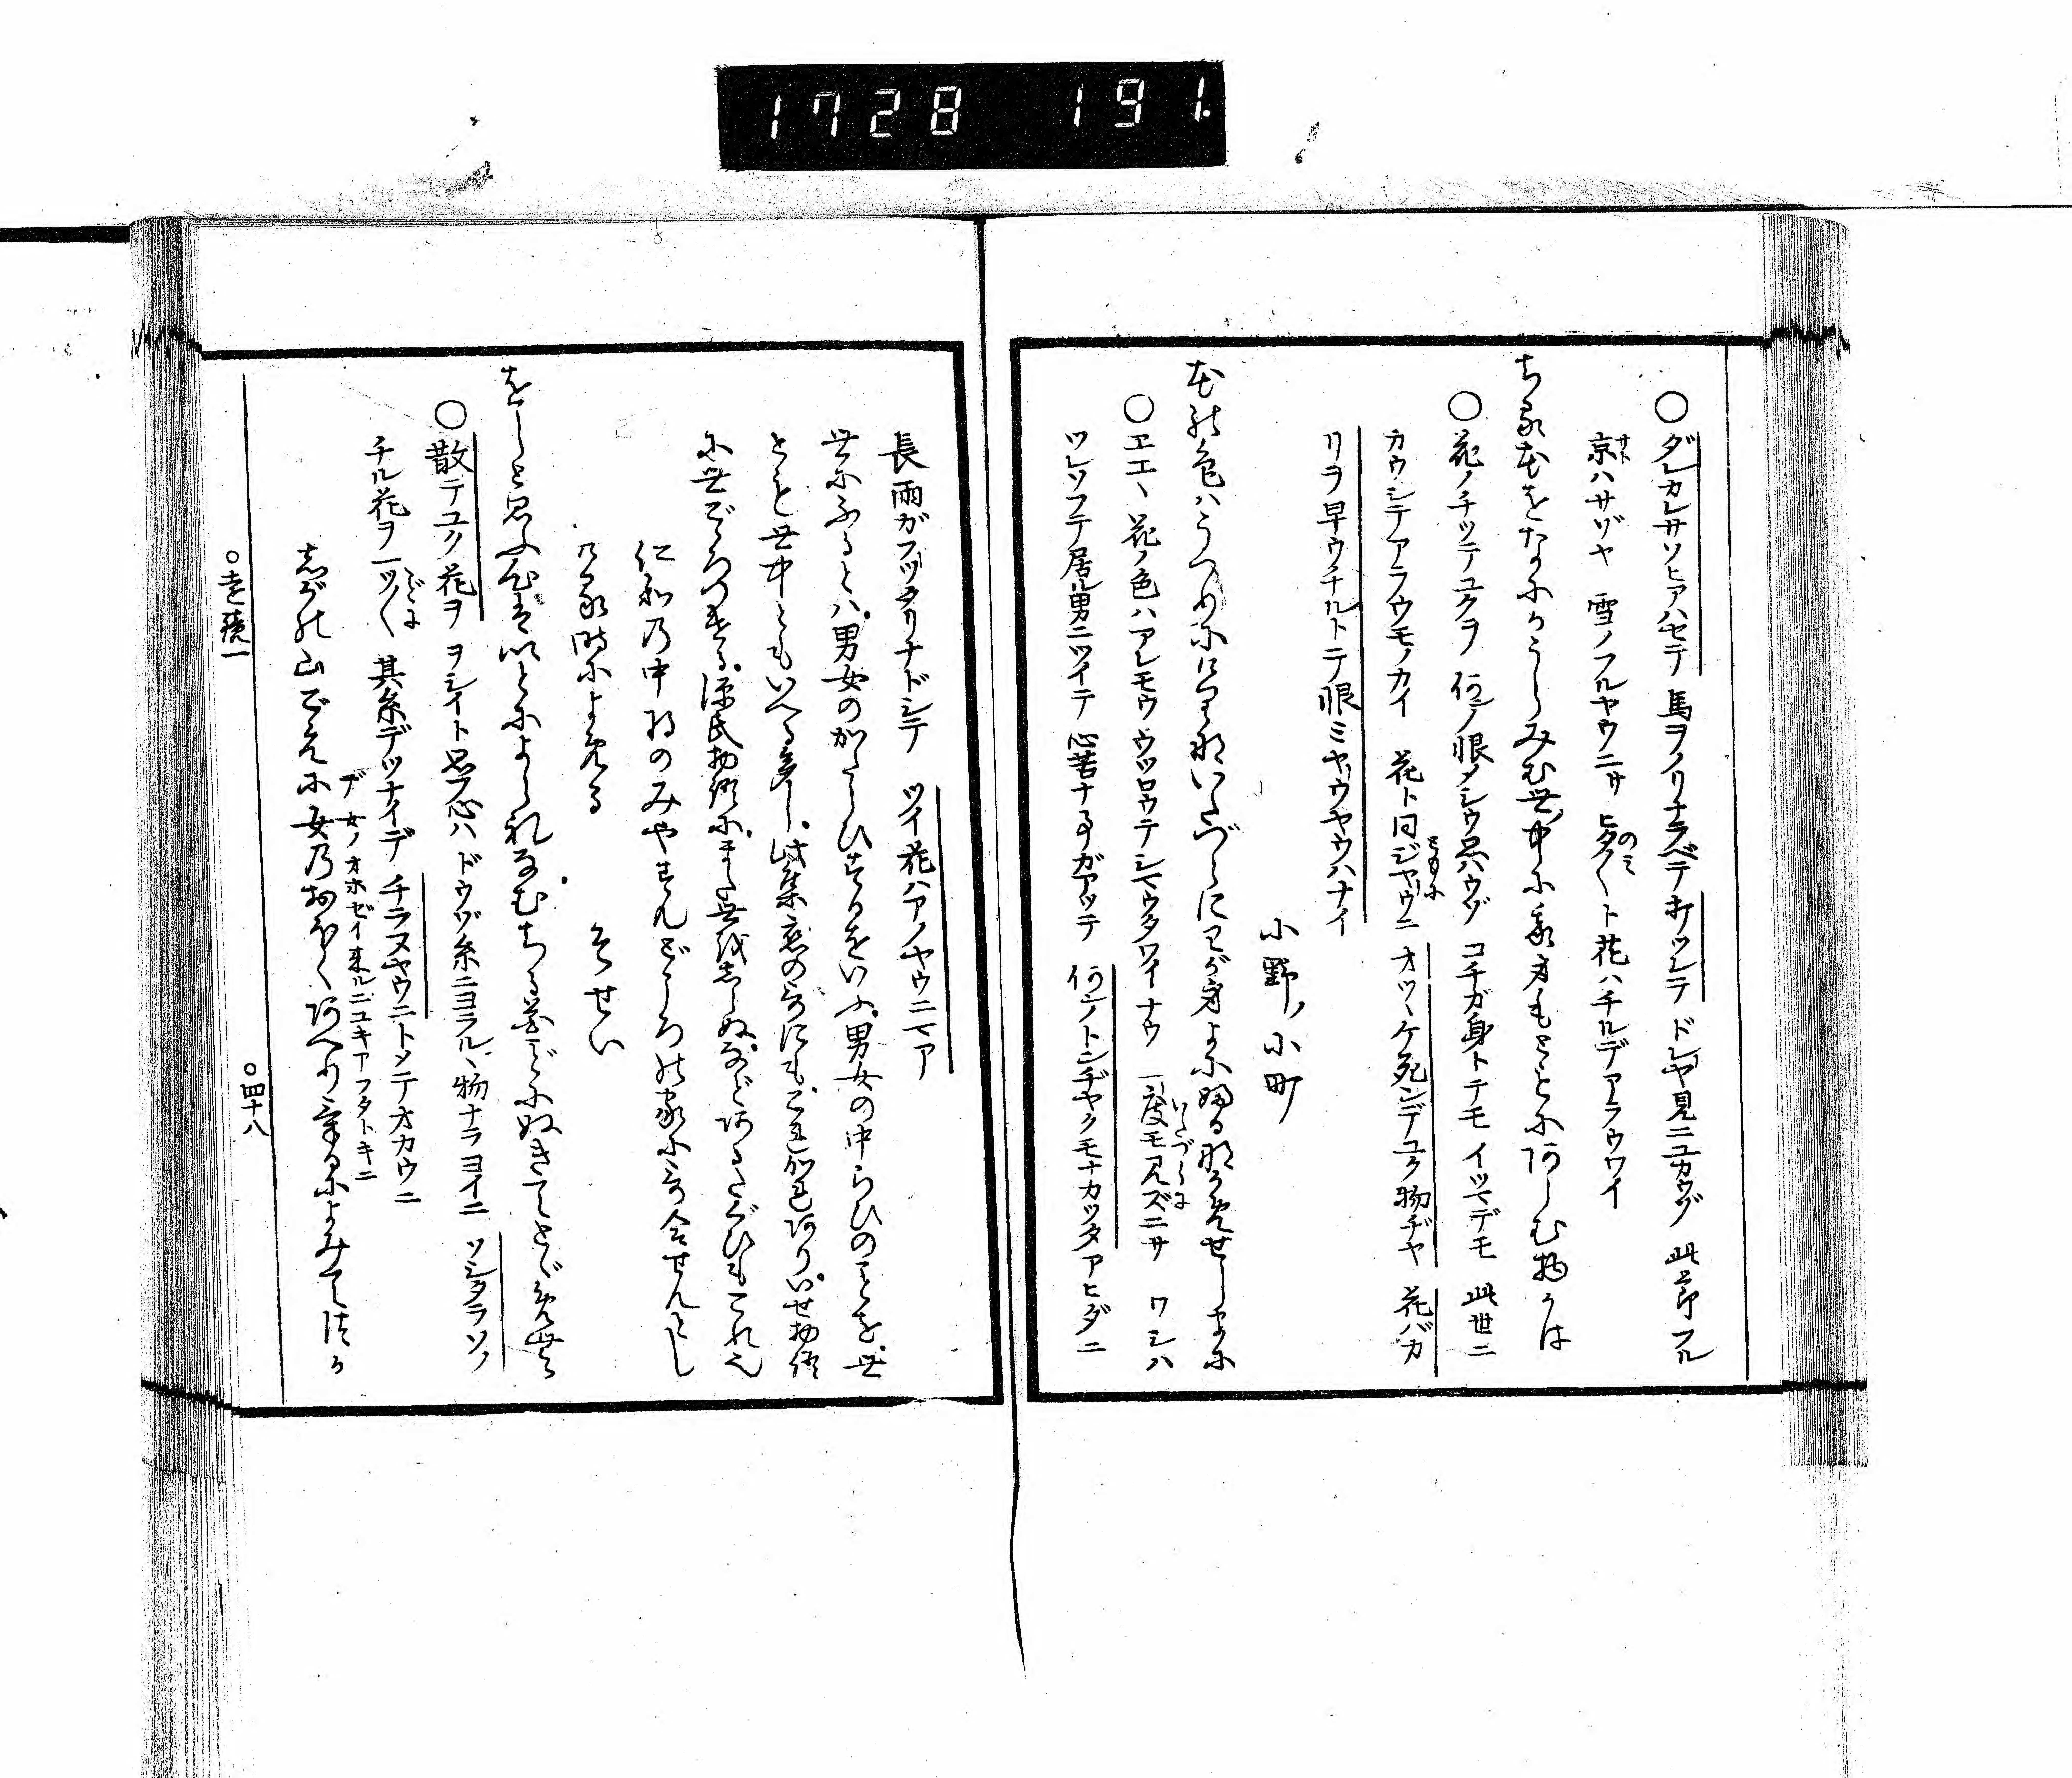 1728 191.
○ダレカレサソヒアハセテ 馬ヲノリナラベテ 打ツレテ ドレヤ見ニユカウゾ 此節フル
京ハサゾヤ 雪ノフルヤウニサ ヒタ〳〵ト花ハチルデアラウワイ
サト
のミ
ちる花をなにかうらみむ世ノ中に我身もともにあらむ物かは
○花ノチッテユクヲ 何ノ恨メシウ思ハウゾ コチガ身トテモ イツマデモ 此世ニ
カウシテアラウモノカイ 花ト同ジヤウニ オツヽケ死ンデユク物ヂヤ 花バカ
ともに
リヲ早ウチルトテ恨ミヤウヤウハナイ
小野ノ小町
花の色ハうつりにけりないたづらにわが身よにふるながめせしまに
○エエヽ 花ノ色ハアレモウ ウツロウテシマウタワイナウ 一度モ見ズニサ ワシハ
いたづらに
ツレソフテ居ル男ニツイテ 心苦ナ事ガアッテ 何ノトンヂヤクモナカッタアヒダニ
長雨ガフッタリナドシテ ツイ花ハアノヤウニマア
世にふるとハ、男女のかたらひするをいふ、男女の中らひのことを、世
とも世中ともいへる多し、此集恋の哥にも、これかれあり、いせ物語
に世ごゝろつける、源氏物語に、まだ世をしらぬ、などあるたぐひもこれ也
仁和の中将のみやすん所の家に哥合せんとし
ける時によめる
そせい
をしと思ふ心は糸によられなむちる花ごとにぬきてとゞめむ
○散テユク花ヲ ヲシイト思フ心ハ ドウゾ糸ニヨラルヽ物ナラヨイニ ソシタラソノ
チル花ヲ一ツ〳〵 其糸デツナイデ チラヌヤウニトメテオカウニ
ごとに
しがの山ごえに女のおほくあへりけるによみてつか
デ 女ノオホゼイ来ルニユキアフタトキニ
○遠鏡一
○四十八